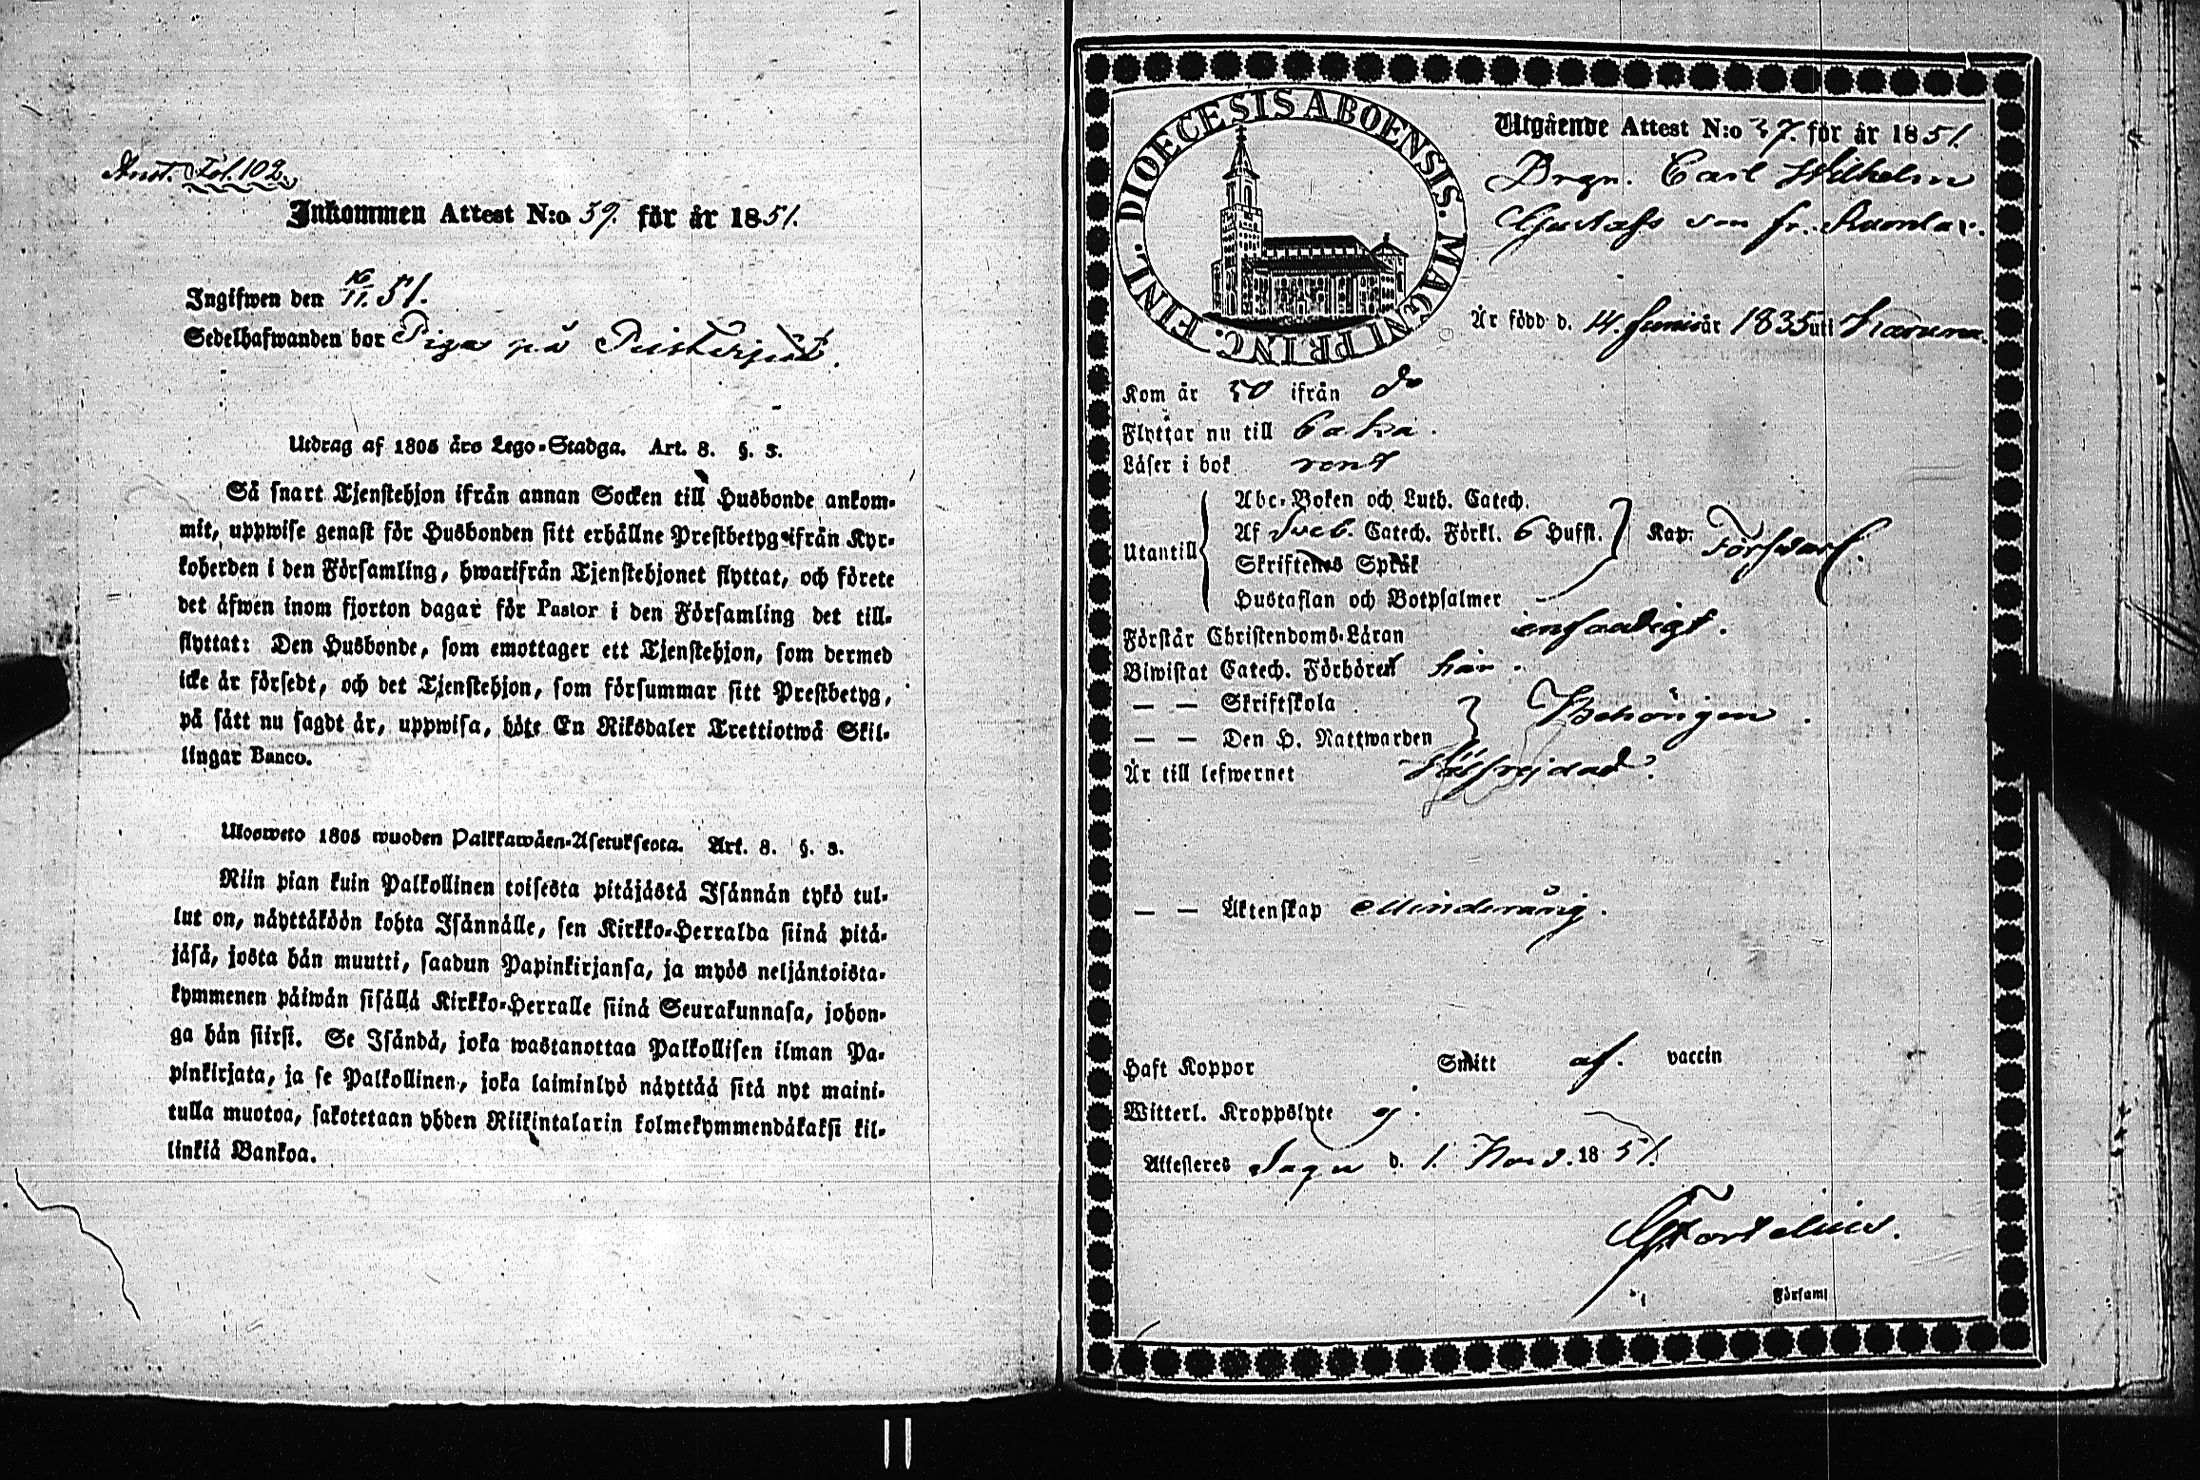 Ant. Fol. 102.
Inkommen Attest N:o 39. för år 1851.
Ingifwen den 16/11. 51.
Sedelhafwanden bor Piga på
Utdrag af 1805 års Lego-Stadga. Art. 8. §. 3.
Så snart Tjenstehjon ifrån annan Socken till Husbonde ankom-
mit, uppwise genast för Husbonden sitt erhållne Prestbetyg ifrån Kyr-
koherden i den Församling, hwarifrån Tjenstehjonet flyttat, och förete
det äfwen inom fjorton dagar för Pastor i den Församling det till-
flyttat: Den Husbonde, som emottager ett Tjenstehjon, som dermed
icke är försedt, och det Tjenstehjon, som försummar sitt Prestbetyg,
på sätt nu sagdt är, uppwisa, böte En Riksdaler Trettiotwå Skil-
lingar Banco.
Ulosweto 1805 wuoden Palkkawäen-Asetuksesta. Art. 8. §. 3.
Niin pian kuin Palkollinen toisesta pitäjästä Isännän tykö tul-
lut on, näyttäköön kohta Isännälle, sen Kirkko-Herralda siinä pitä-
jäsä, josta hän muutti, saadun Papinkirjansa, ja myös neljäntoista-
kymmenen päiwän sisällä Kirkko-Herralle siinä Seurakunnasa, johon-
ga hän siirsi. Se Isändä, joka wastanottaa Palkollisen ilman Pa-
pinkirjata, ja se Palkollinen, joka laiminlyö näyttää sitä nyt maini-
tulla muotoa, sakotetaan yhden Riikintalarin kolmekymmendäkaksi kil-
linkiä Bankoa.
DIOECESIS ABOENSIS. MAGNI PRINC. FINL.
Utgående Attest N:o 37. för år 1851.
Drgn. Carl Wilhelm
Gustafss son fr.
Är född d. 14. Junii år 1835 uti Karuna.
Kom år 50 ifrån do
Flyttar nu till
Läser i bok rent
Utantill
Abc-Boken och Luth. Catech.
Af Sveb. Catech. Förkl. 6 Hufst. Kap. Försvarl.
Skriftenes Språk
Hustaflan och Botpsalmer
Förstår Christendoms-Läran enfaldigt.
Biwistat Catech. Förhören här.
— — Skriftskola
— — Den H. Nattwarden Behörigen.
Är till lefwernet Wälfrejdad.
— — Äktenskap Minderårig.
Haft Koppor Smitt af. vaccin
Witterl. Kroppslyte ej.
Attesteres Sagu d. 1. Nov. 1851.
Församl